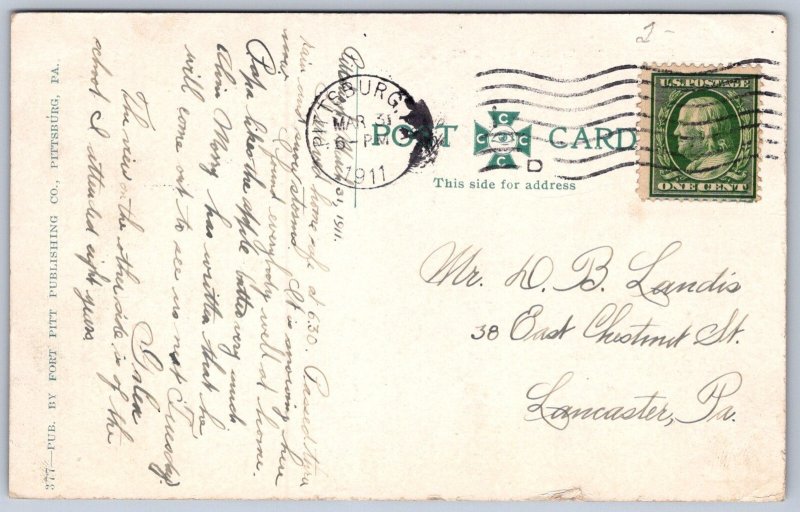 2-
PITTSBURG, PA.
MAR 31
6-PM
1911
D
U.S. POSTAGE
ONE CENT
POST CARD
This side for address
Mr. D. B. Landis
38 East Chestnut St.
Lancaster, Pa.
March 31, 1911.
home safe at 6:30. Passed thru
rain and snow storms. It is snowing here
now. Found everybody well at home.
Papa likes the apple butter very much
Alvin Merry has written that he
will come out to see us next Tuesday.
The view on the other side is of the
school I attended eight years
377—PUB. BY FORT PITT PUBLISHING CO., PITTSBURG, PA.